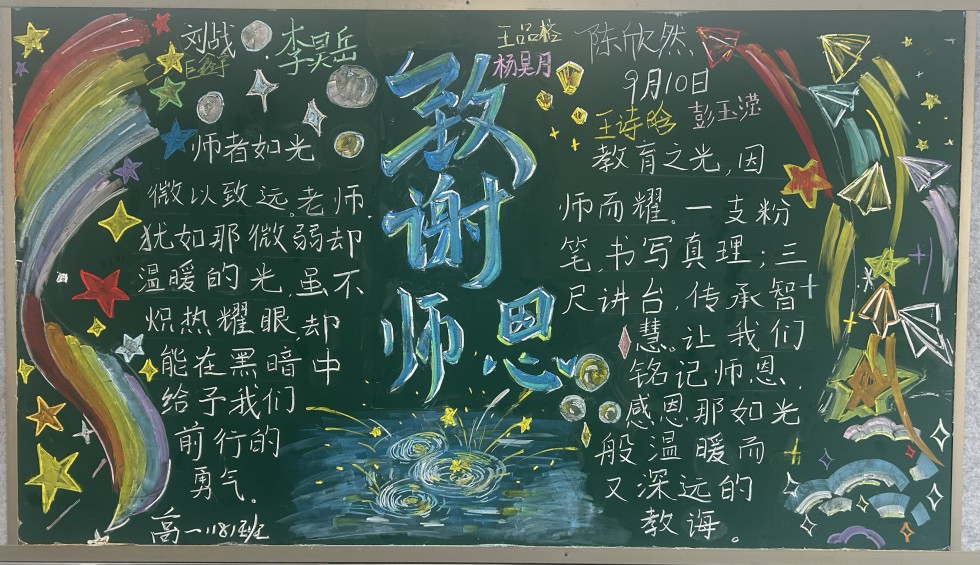 刘战
李昊岳
师者如光
微以致远。老师,
犹如那微弱却
温暖的光,虽不
炽热耀眼,却
能在黑暗中
给予我们
前行的
勇气。
高一1181班
致
谢
师恩
杨昊月
陈欣然
9月10日
王诗晗 彭玉滢
教育之光,因
师而耀。一支粉
笔,书写真理;三
尺讲台,传承智
慧。让我们
铭记师恩,
感恩那如光
般温暖而
又深远的
教诲。